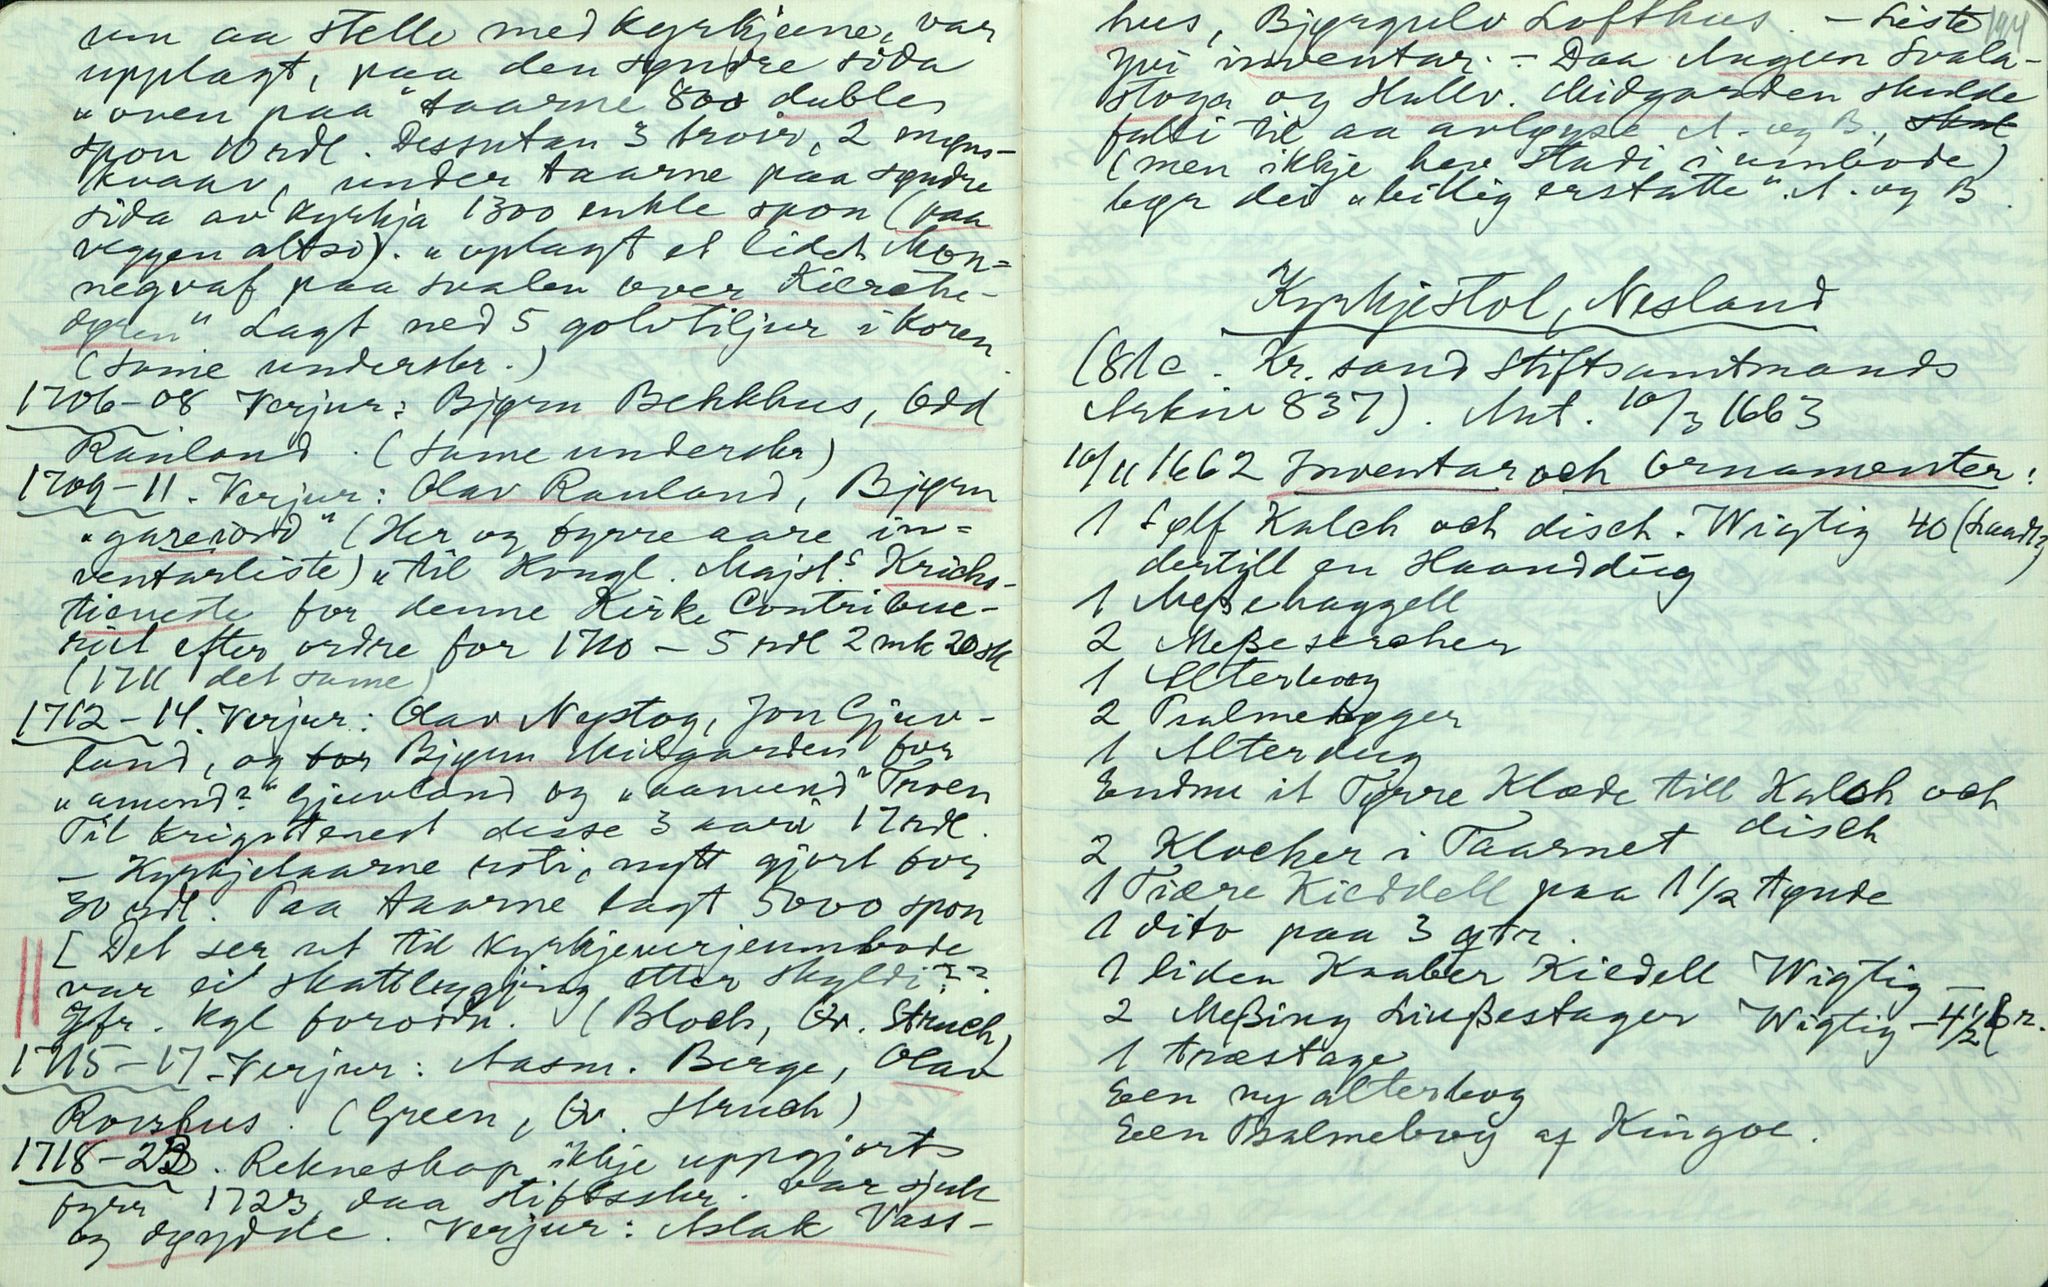 um aa stelle med kyrkjene, var
upplagt, paa den syndre sida
"oven paa" taarne 800 duble
spon 10 rdl. Dessutan 3 troir, 2 myns-
kvaar, under taarne paa syndre
sida av kyrkja 1300 enkle spon (paa
veggen altso). "oplagt et lidet Møn-
neqvaf paa svalen over Kierche-
døren" Lagt ned 5 golvtiljur i koren
(same underskr.)
1706-08 Verjur: Bjørn Bekkhus, Odd
Rauland. (same underskr)
1709-11. Verjur: Olav Rauland, Bjørn
"gareiord" (Her og fyrre aare in-
ventarliste) "til Kongl. Majst.s Krichs-
tieneste for denne Kirke Contribue-
rit efter ordre for 1710 - 5 rdl 2 mk 20 sk
(1711 det same)
1712-14. Verjur: Olav Nystog, Jon Gjuv-
land, og for Bjørn Midgarden for
"amund?" Gjuvland og "aamund" Troen
Til krigstenest desse 3 aari 17 rdl.
- Kyrkjetaarne roti, nytt gjort for
30 rdl. Paa taarne lagt 5000 spon
[Det ser ut til kyrkjeverjeumbode
var eit skattleggjing etter skyldi??
Jfr. kgl forordn. (Bloch, Chr. Struch)
1715-17. Verjur: Aasm. Berge, Olav
Rorhus. (Green, Chr. Struch)
1718-23. Rekneskap ikkje uppgjort
fyrr 1723, daa stiftsskr. var sjuk
og døydde. Verjur: Aslak Vass-
194
hus, Bjørgulv Lofthus. - Liste
yvi inventar. - Daa Augun Svala-
stoga og Hallv. Midgarden skulde
falli til aa avløyse A. og B., skal
(men ikkje hev stadi i umbode)
bør dei "billig erstatte" A. og B.
Kyrkjestol, Nesland
(81c. Kr.sand Stiftsamtmands
Arkiv 837). Ant. 10/3 1663
10/11 1662 Inventar och Ornamenter:
1 Sølf Kalch och disch. Wigtig 40 (
dertill en Haanddug
1 Meßehaggell
2 Meßesercher
1 Alterbog
2 Psalmebøgger
1 Alterdug
Endnu it Tyrre Klæde till Kalch och
disch
2 Klocher i Taarnet
1 Tiære Kieddell paa 1 1/2 tynde
1 dito paa 3 qtr.
1 liden Kaaber Kiedell Wigtig -
2 Meßing Liußestager Wigtig - 4 1/2
1 træstage
Een ny alterbog
Een Psalmebog af Kingoe.